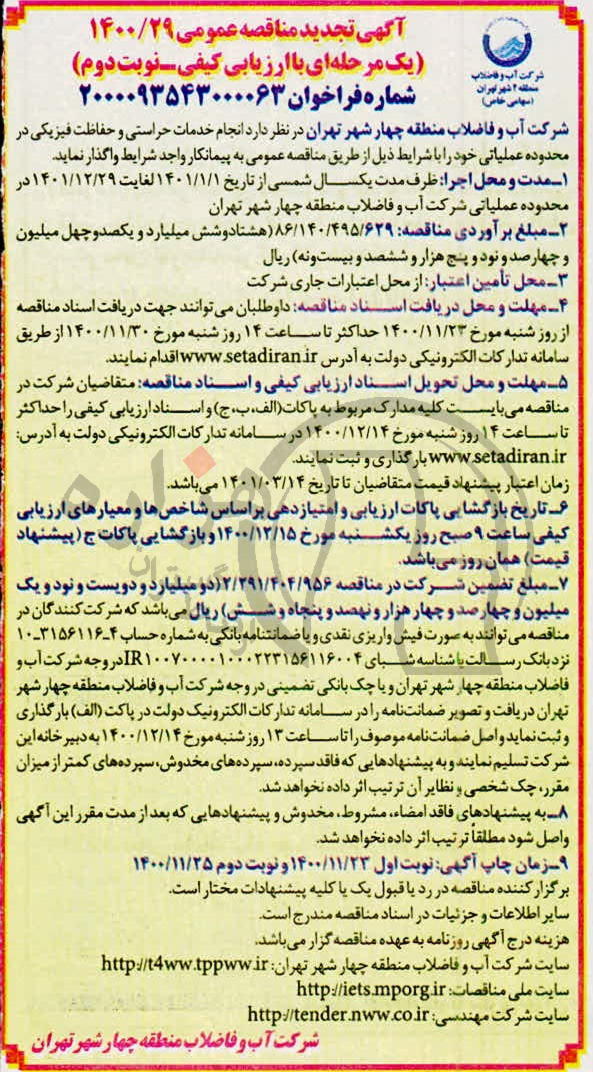 آگهی تجدید مناقصه عمومی ۱۴۰۰/۲۹
(یک مرحله‌ای با ارزیابی کیفی ـ نوبت دوم)
شماره فراخوان ۲۰۰۰۰۹۳۵۴۳۰۰۰۰۶۳
شرکت آب و فاضلاب
منطقه ۴ شهر تهران
(سهامی خاص)
شرکت آب و فاضلاب منطقه چهار شهر تهران در نظر دارد انجام خدمات حراستی و حفاظت فیزیکی در
محدوده عملیاتی خود را با شرایط ذیل از طریق مناقصه عمومی به پیمانکار واجد شرایط واگذار نماید.
۱ـ مدت و محل اجرا: ظرف مدت یکسال شمسی از تاریخ ۱۴۰۱/۱/۱ لغایت ۱۴۰۱/۱۲/۲۹ در
محدوده عملیاتی شرکت آب و فاضلاب منطقه چهار شهر تهران
۲ـ مبلغ برآوردی مناقصه: ۸۶/۱۴۰/۴۹۵/۶۲۹ (هشتادوشش میلیارد و یکصدوچهل میلیون
و چهارصد و نود و پنج هزار و ششصد و بیست‌ونه) ریال
۳ـ محل تأمین اعتبار: از محل اعتبارات جاری شرکت
۴ـ مهلت و محل دریافت اسناد مناقصه: داوطلبان می‌توانند جهت دریافت اسناد مناقصه
از روز شنبه مورخ ۱۴۰۰/۱۱/۲۳ حداکثر تا ساعت ۱۴ روز شنبه مورخ ۱۴۰۰/۱۱/۳۰ از طریق
سامانه تدارکات الکترونیکی دولت به آدرس www.setadiran.ir اقدام نمایند.
۵ـ مهلت و محل تحویل اسناد ارزیابی کیفی و اسناد مناقصه: متقاضیان شرکت در
مناقصه می‌بایست کلیه مدارک مربوط به پاکات (الف، ب، ج) و اسناد ارزیابی کیفی را حداکثر
تا ساعت ۱۴ روز شنبه مورخ ۱۴۰۰/۱۲/۱۴ در سامانه تدارکات الکترونیکی دولت به آدرس:
www.setadiran.ir بارگذاری و ثبت نمایند.
زمان اعتبار پیشنهاد قیمت متقاضیان تا تاریخ ۱۴۰۱/۰۳/۱۴ می‌باشد.
۶ـ تاریخ بازگشایی پاکات ارزیابی و امتیازدهی براساس شاخص‌ها و معیارهای ارزیابی
کیفی ساعت ۹ صبح روز یکشنبه مورخ ۱۴۰۰/۱۲/۱۵ و بازگشایی پاکات ج (پیشنهاد
قیمت) همان روز می‌باشد.
۷ـ مبلغ تضمین شرکت در مناقصه ۲/۲۹۱/۴۰۴/۹۵۶ (دو میلیارد و دویست و نود و یک
میلیون و چهارصد و چهار هزار و نهصد و پنجاه و شش) ریال می‌باشد که شرکت‌کنندگان در
مناقصه می‌توانند به صورت فیش واریزی نقدی و یا ضمانتنامه بانکی به شماره حساب ۴ـ۳۱۵۶۱۱۶ـ۱۰
نزد بانک رسالت با شناسه شبای IR۱۰۰۷۰۰۰۰۱۰۰۰۲۲۳۱۵۶۱۱۶۰۰۴ در وجه شرکت آب و
فاضلاب منطقه چهار شهر تهران و یا چک بانکی تضمینی در وجه شرکت آب و فاضلاب منطقه چهار شهر
تهران دریافت و تصویر ضمانت‌نامه را در سامانه تدارکات الکترونیک دولت در پاکت (الف) بارگذاری
و ثبت نماید و اصل ضمانت‌نامه موصوف را تا ساعت ۱۳ روز شنبه مورخ ۱۴۰۰/۱۲/۱۴ به دبیرخانه این
شرکت تسلیم نمایند و به پیشنهادهایی که فاقد سپرده، سپرده‌های مخدوش، سپرده‌های کمتر از میزان
مقرر، چک شخصی و نظایر آن ترتیب اثر داده نخواهد شد.
۸ـ به پیشنهادهای فاقد امضاء، مشروط، مخدوش و پیشنهادهایی که بعد از مدت مقرر این آگهی
واصل شود مطلقاً ترتیب اثر داده نخواهد شد.
۹ـ زمان چاپ آگهی: نوبت اول ۱۴۰۰/۱۱/۲۳ و نوبت دوم ۱۴۰۰/۱۱/۲۵
برگزارکننده مناقصه در رد یا قبول یک یا کلیه پیشنهادات مختار است.
سایر اطلاعات و جزئیات در اسناد مناقصه مندرج است.
هزینه درج آگهی روزنامه به عهده مناقصه‌گزار می‌باشد.
سایت شرکت آب و فاضلاب منطقه چهار شهر تهران: http://t4ww.tppww.ir
سایت ملی مناقصات: http://iets.mporg.ir
سایت شرکت مهندسی: http://tender.nww.co.ir
شرکت آب و فاضلاب منطقه چهار شهر تهران